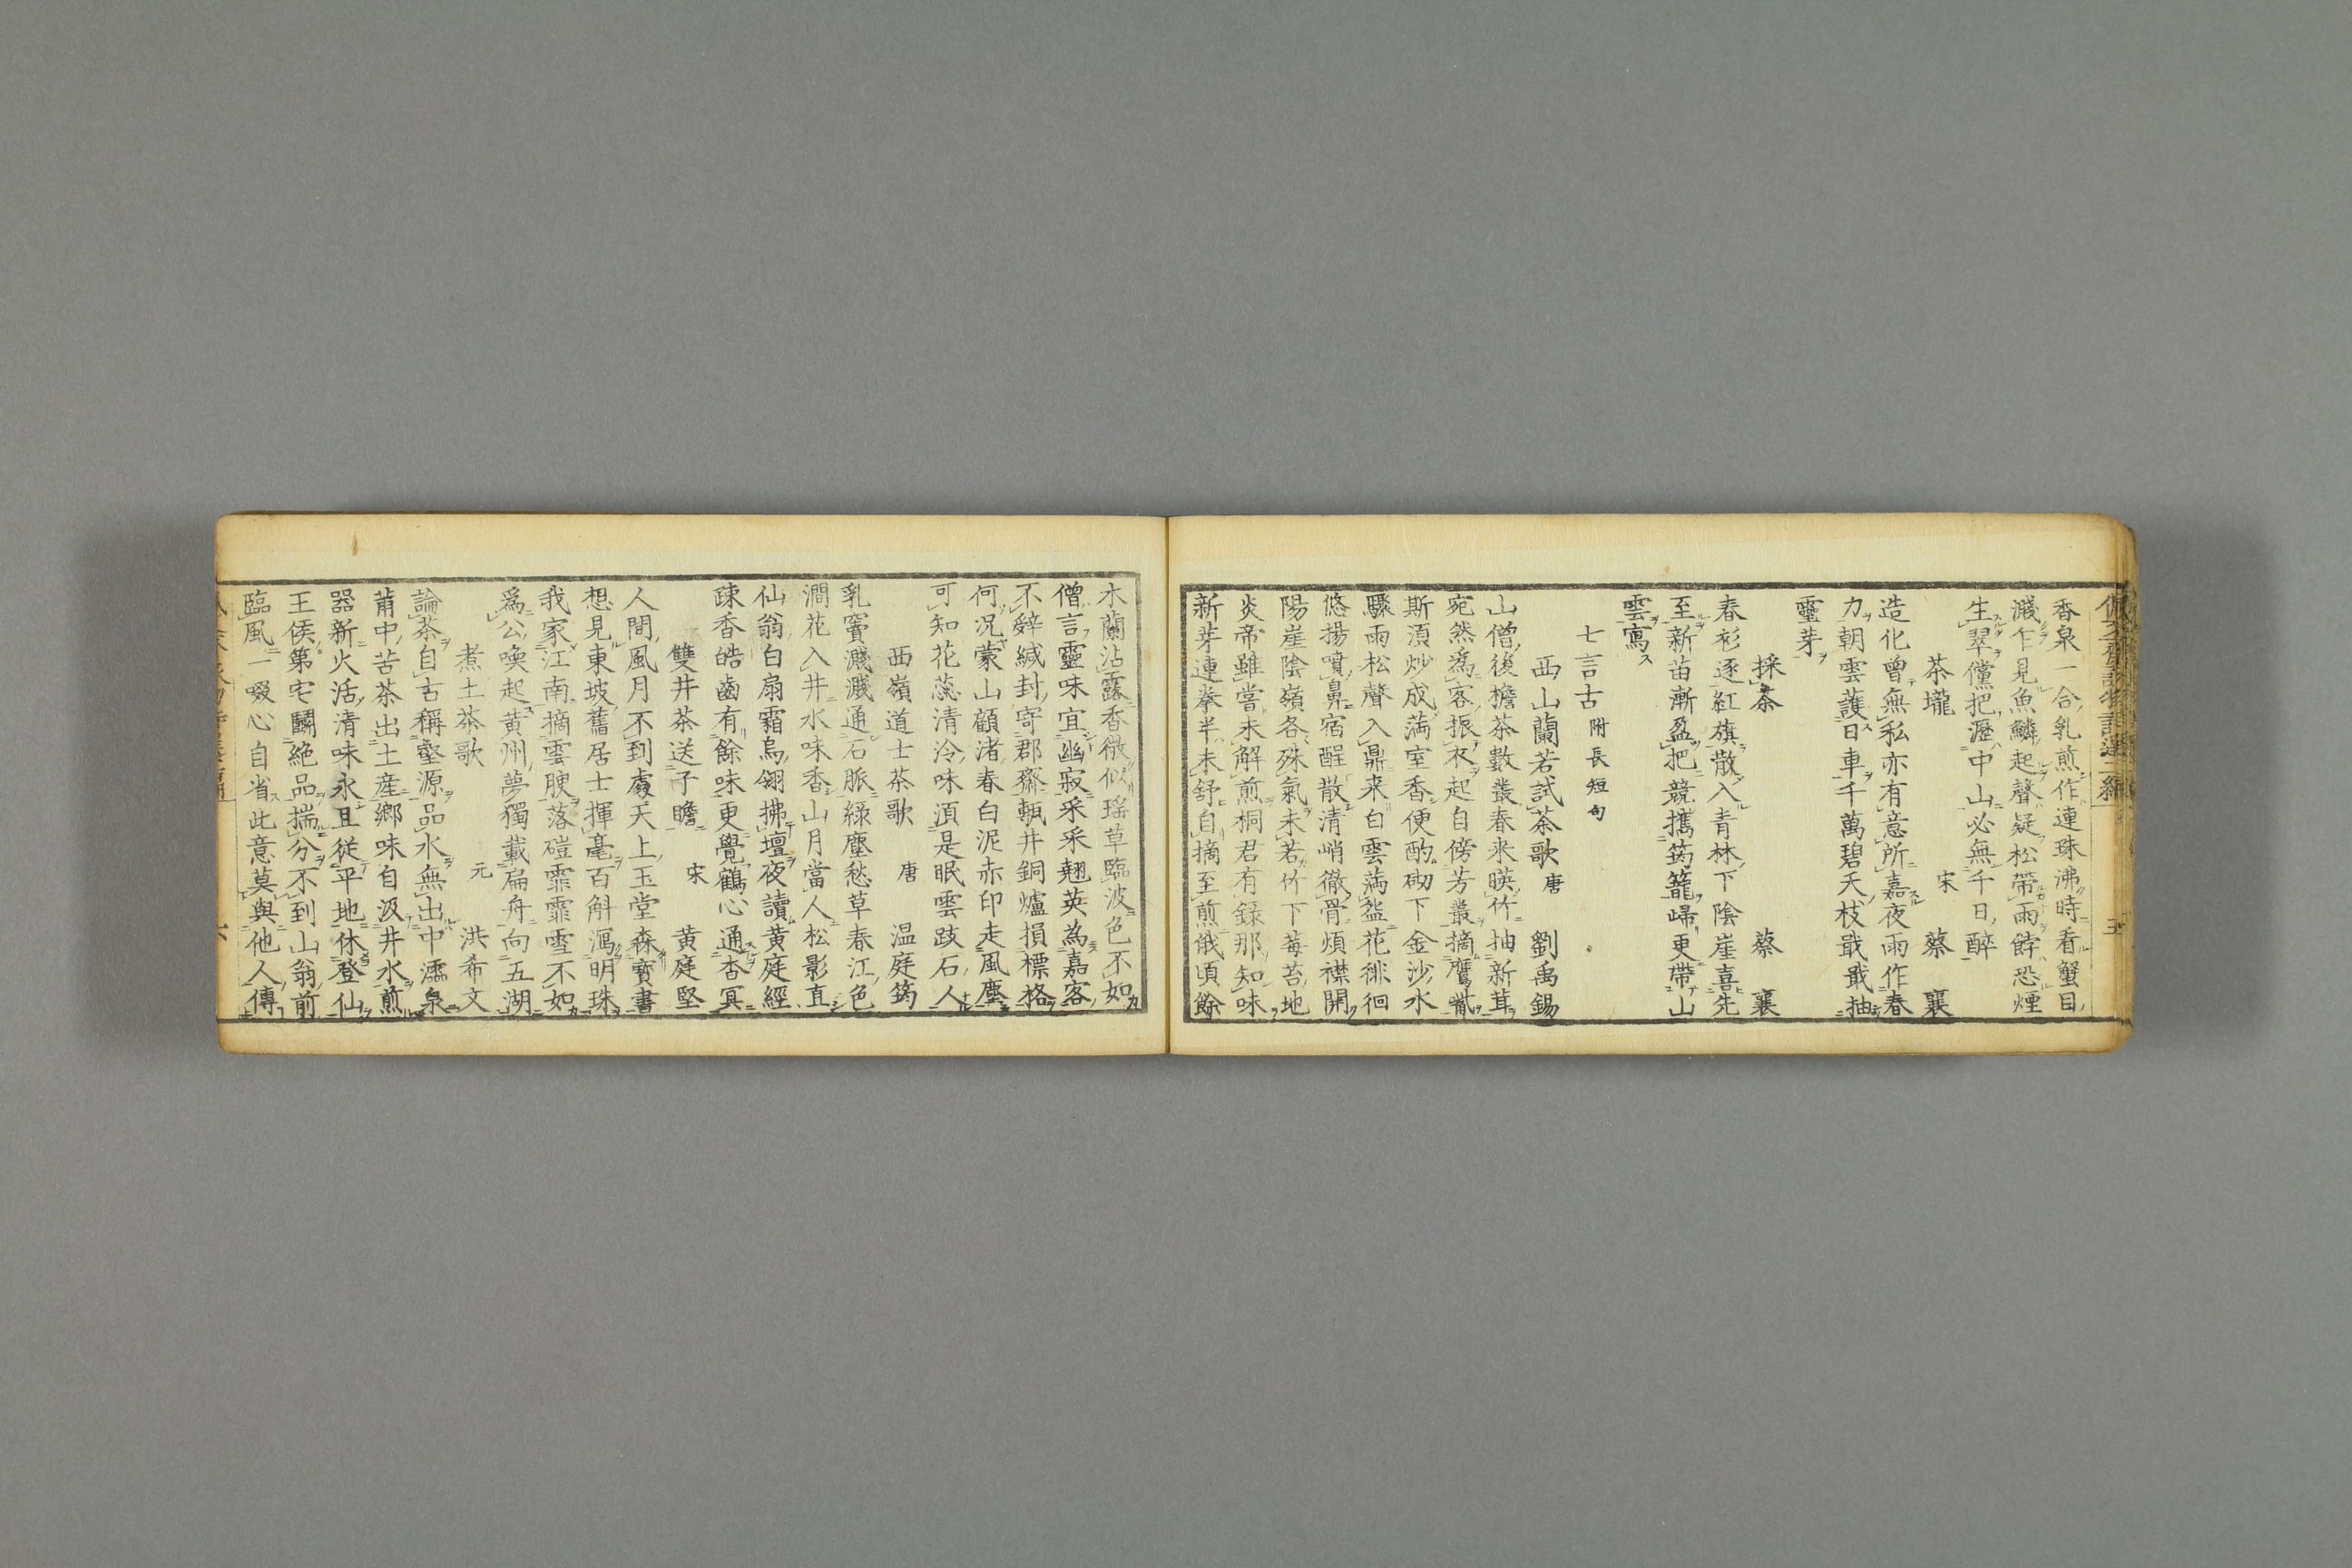 香泉一合乳煎作連珠沸時看蟹目
濺乍見魚鱗起聲疑松帶雨餑恐煙
生翠儻把瀝中山必無千日醉
茶壠 宋 蔡襄
造化曾無私亦有意所嘉夜雨作春
力朝雲護日車千萬碧天枝戢戢抽
靈芽
採茶 蔡襄
春衫逐紅旗散入青林下陰崖喜先
至新苗漸盈把競攜筠籠歸更帶山
雲寫
七言古 附長短句
西山蘭若試茶歌 唐 劉禹錫
山僧後檐茶數叢春来暎竹抽新茸
宛然為客振衣起自傍芳叢摘鷹觜
斯須炒成滿室香便酌砌下金沙水
驟雨松聲入鼎来白雲滿盌花徘徊
悠揚噴鼻宿酲散清峭徹骨煩襟開
陽崖陰嶺各殊氣未若竹下莓苔地
炎帝雖嘗未解煎桐君有錄那知味
新芽連拳半未舒自摘至煎俄頃餘
木蘭沾露香微似瑤草臨波色不如
僧言靈味宜幽寂采采翹英為嘉客
不辭緘封寄郡齋甎井銅爐損標格
何況蒙山顧渚春白泥赤印走風塵
可知花蕊清泠味須是眠雲跂石人
西嶺道士茶歌 唐 温庭筠
乳竇濺濺通石脈綠塵愁草春江色
澗花入井水味香山月當人松影直
仙翁白扇霜鳥翎拂壇夜讀黃庭經
疎香皓齒有餘味更覺鶴心通杳冥
雙井茶送子瞻 宋 黃庭堅
人間風月不到處天上玉堂森寶書
想見東坡舊居士揮毫百斛瀉明珠
我家江南摘雲腴落磑霏霏雪不如
為公喚起黃州夢獨載扁舟向五湖
煮土茶歌 元 洪希文
論茶自古稱壑源品水無出中濡泉
莆中苦茶出土産鄉味自汲井水煎
器新火活清味永且從平地休登仙
王侯第宅鬭絕品揣分不到山翁前
臨風一啜心自省此意莫與他人傳